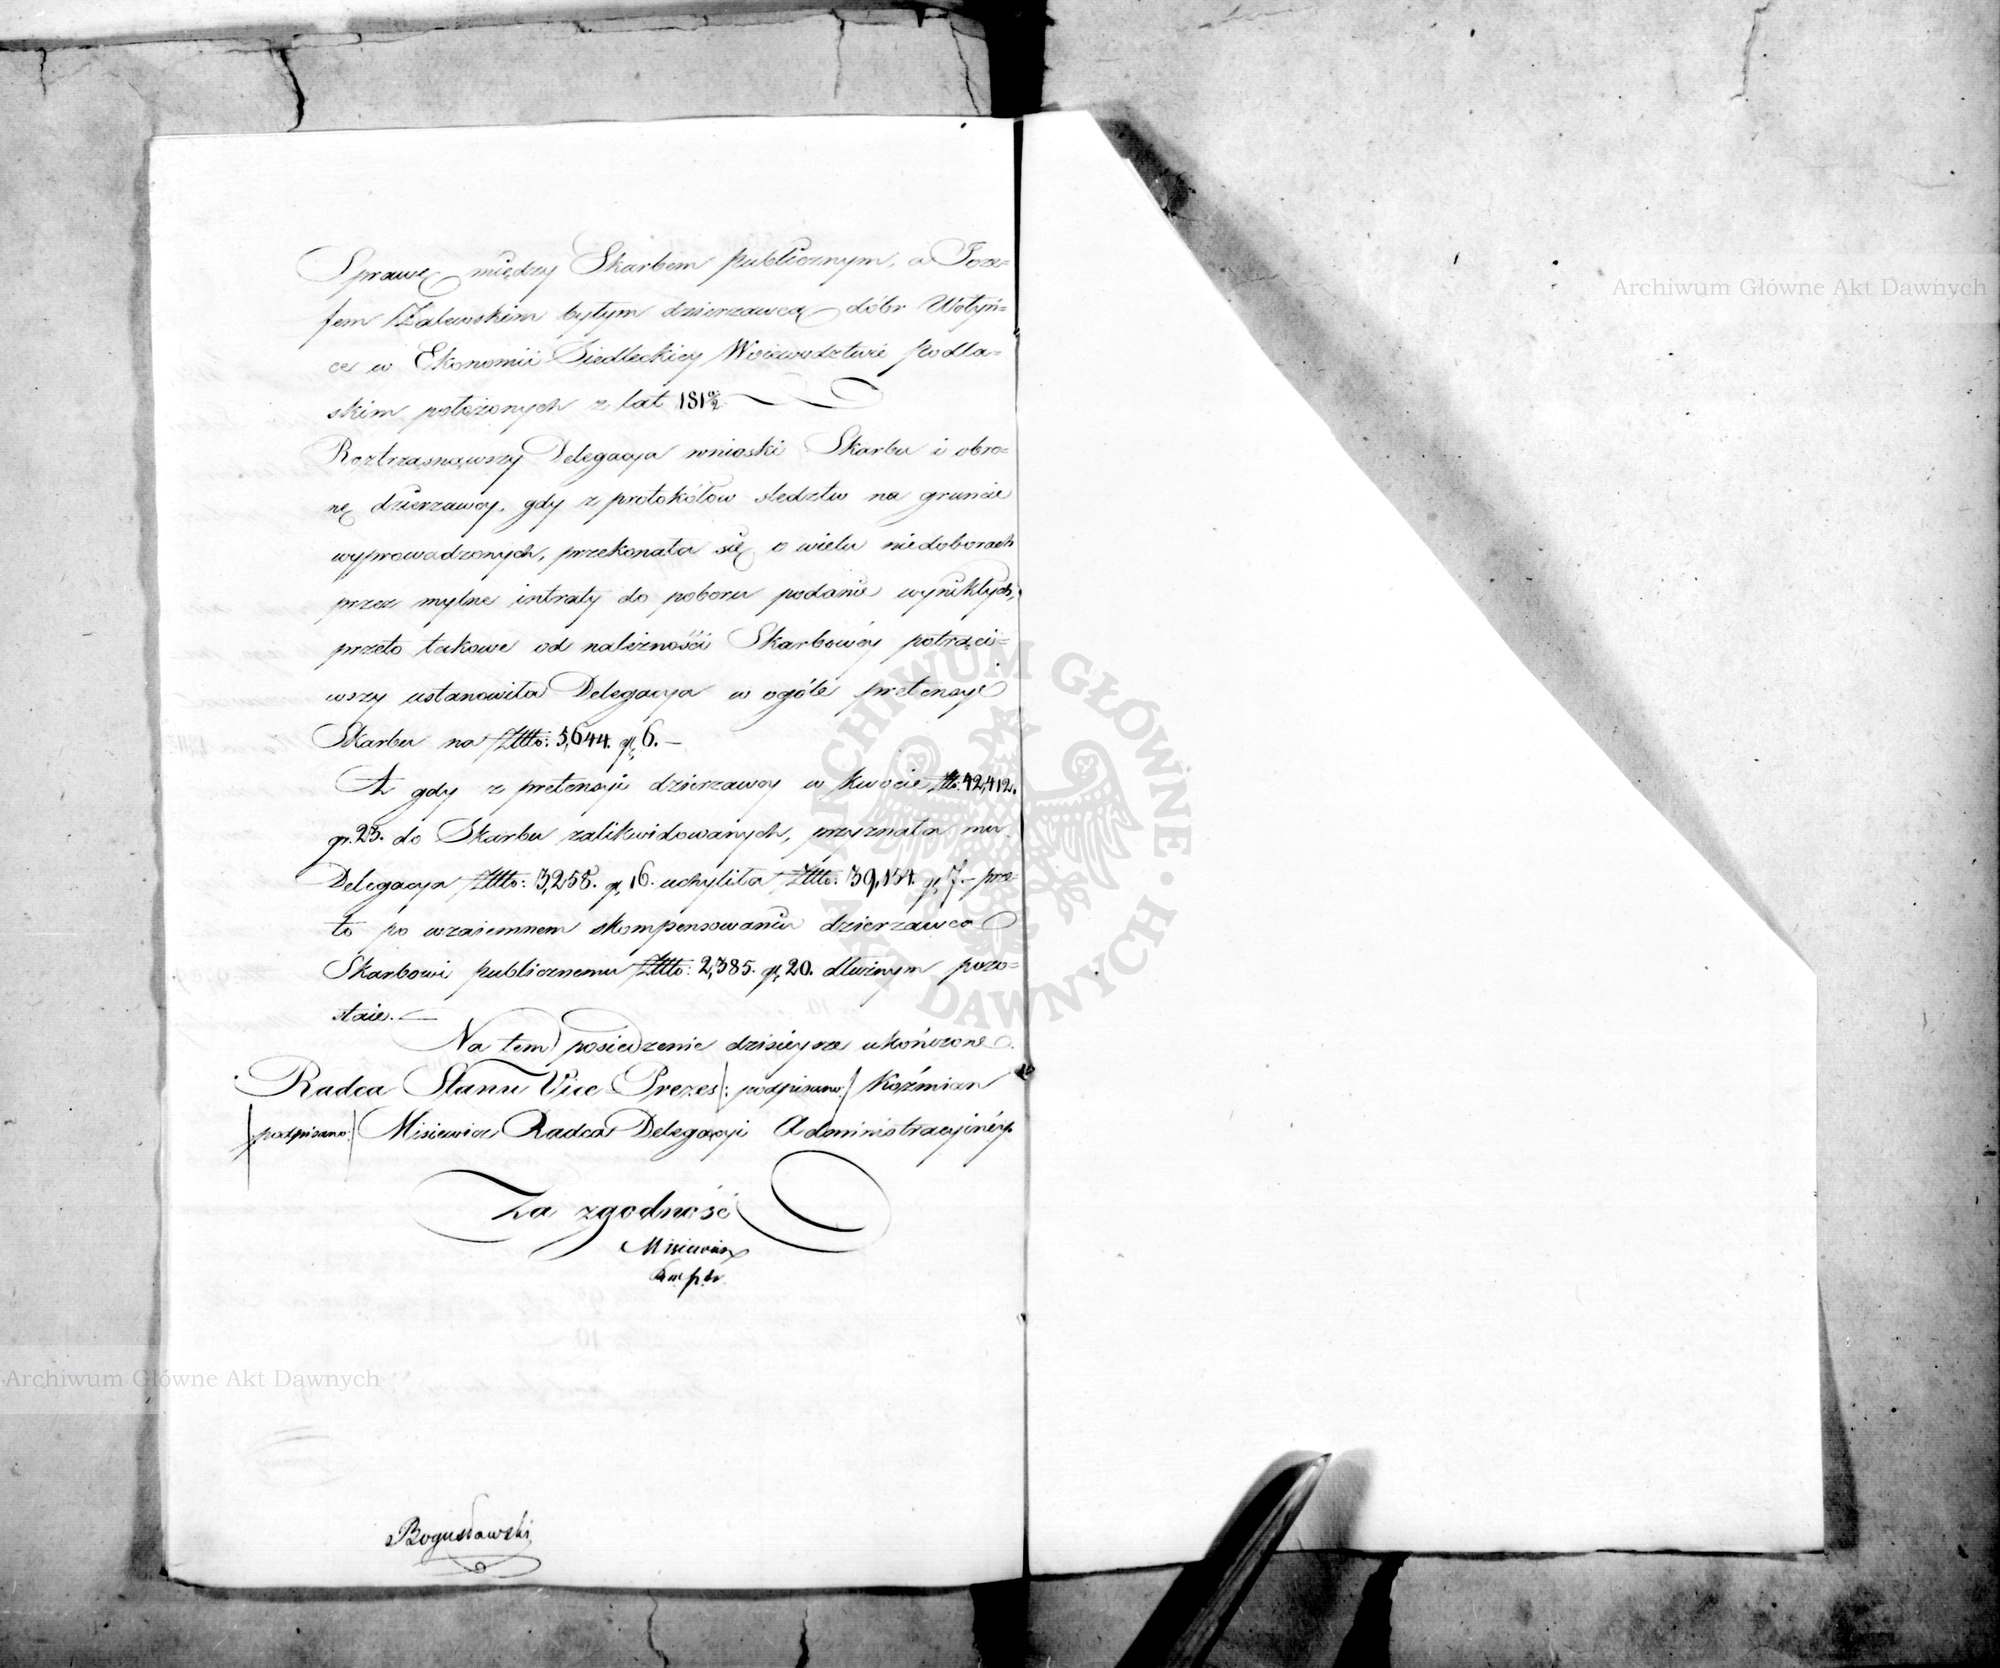 Sprawę między Skarbem publicznym, a Joze=
fem Zalewskim byłym dzierzawcą dóbr Wołyń=
ce w Ekonomii Siedleckiey Woiewodztwie Podla=
skim położonych z lat 181 0/2
Roztrząsnąwszy Delegacya wnioski Skarbu i obro=
nę dzierzawcy, gdy z protokółów sledztw na gruncie
wyprowadzonych, przekonała się o wielu niedoborach
przez mylne intraty do poboru podanie wynikłych,
przeto takowe od należności Skarbowéy potrąci=
wszy ustanowiła Delegacya w ogóle pretensye
Skarbu na Złło: 5,644. gr 6. —
A gdy z pretensyi dzierzawcy w kwocie Złło: 42,412.
gr. 23. do Skarbu zalikwidowanych, przyznała mu
Delegacya Złło: 3,258. gr 16. uchyliła Złło: 39,154. gr 7. – prze=
to po wzaiemnem skompensowaniu dzierzawca
Skarbowi publicznemu Złło: 2,385. gr 20. dłużnym pozo=
staie. —
Na tem posiedzenie dzisieysze ukończone.
Radca Stanu Vice Prezes /: podpisano :/ Koźmian
/podpisano:/ Misiewicz Radca Delegacyi Administracyinéy
Za zgodność
Misiewicz
Bogusławski
Archiwum Główne Akt Dawnych
Archiwum Główne Akt Dawnych
ARCHIWUM GŁÓWNE AKT DAWNYCH